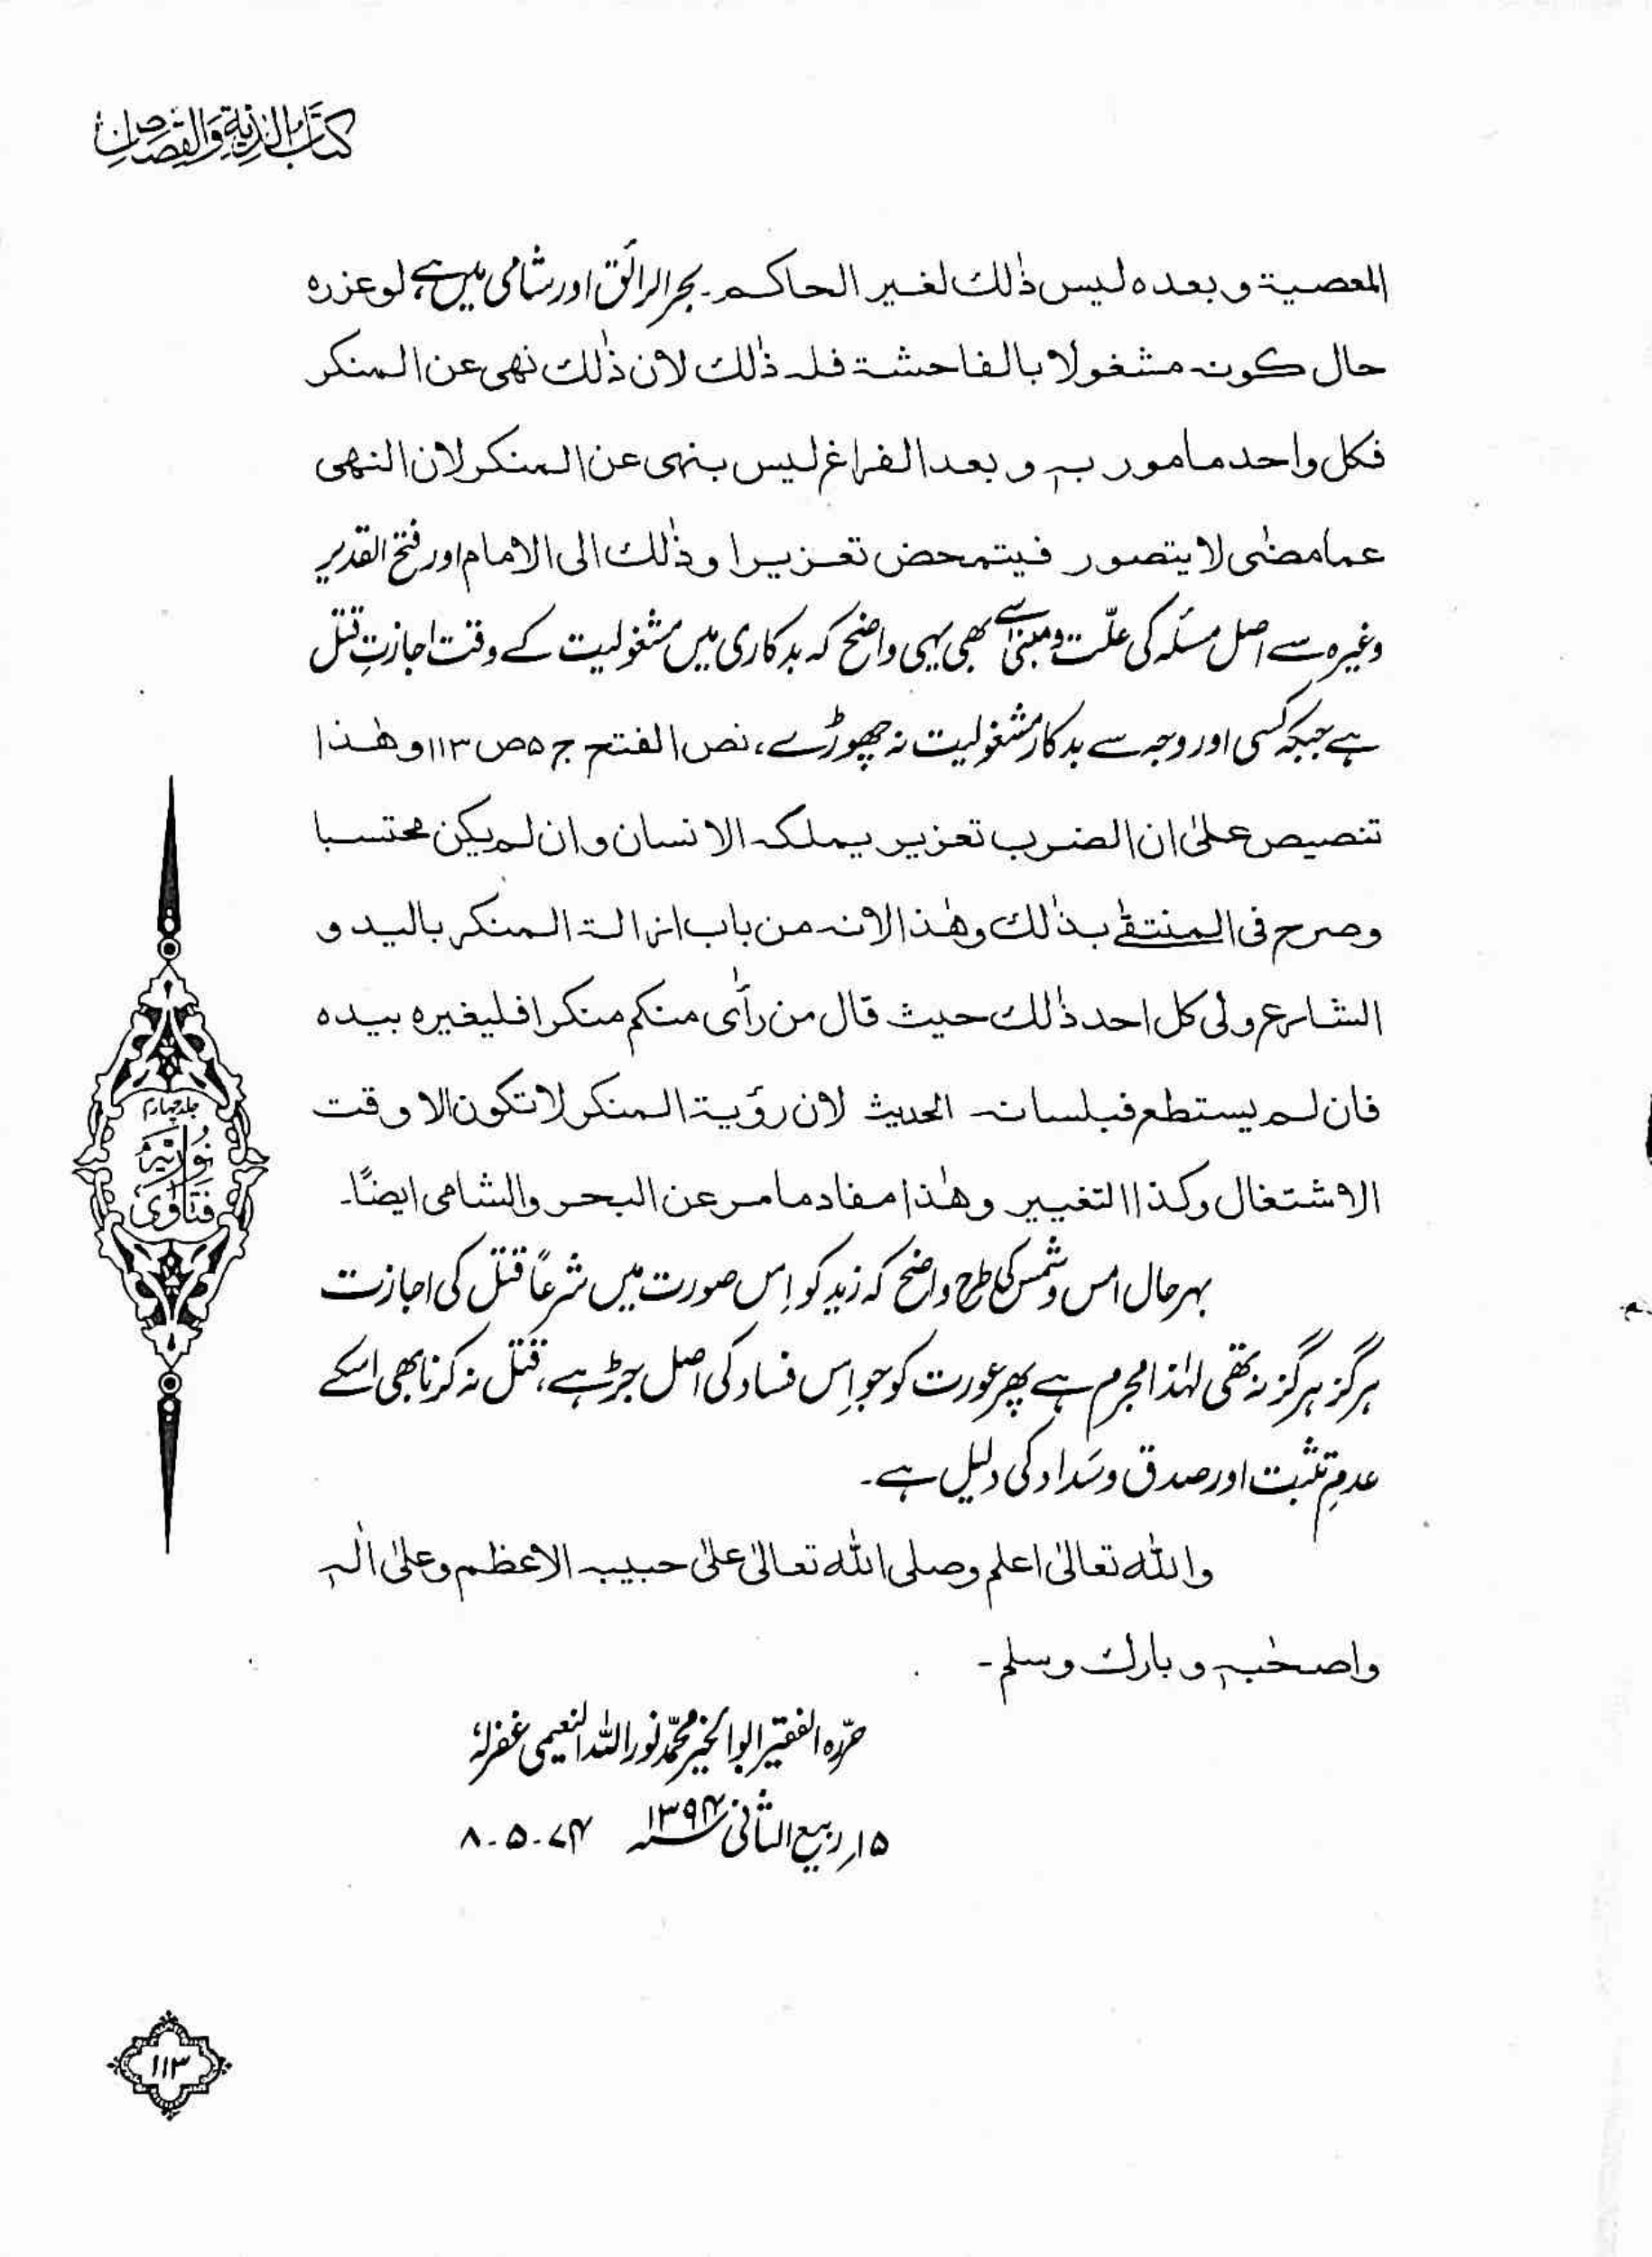 کتاب الدیۃ والقصاص
المعصیۃ و بعدہ لیس ذٰلك لغیر الحاکم۔ بحر الرائق اور شامی میں ہے، لو عزرہ
حال کونہ مشغولا بالفاحشۃ فلہ ذٰلك لان ذٰلك نھی عن المنکر
فکل واحد مامور بہٖ و بعد الفراغ لیس بنہی عن المنکر لان النھی
عما مضٰی لا یتصور فیتمحض تعزیرا و ذٰلك الی الامام اور فتح القدیر
وغیرہ سے اصل مسئلہ کی علّت و مبنیٰ سے بھی یہی واضح کہ بدکاری میں مشغولیت کے وقت اجازتِ قتل
ہے جبکہ کسی اور وجہ سے بدکار مشغولیت نہ چھوڑے، نص الفتح ج ۵ ص ۱۱۳ و ھٰذا
تنصیص علیٰ ان الضرب تعزیر یملکہ الانسان وان لم یکن محتسبا
وصرح فی المنتقےٰ بذٰلك وھٰذا لانہ من باب ازالۃ المنکر بالید و
الشارع ولی کل احد ذٰلك حیث قال من رأی منکم منکرا فلیغیرہ بیدہ
فان لم یستطع فبلسانہ الحدیث لان رؤیۃ المنکر لا تکون الا وقت
الاشتغال وکذا التغییر وھٰذا مفاد ما مر عن البحر والشامی ایضًا۔
بہرحال امس و شمس کی طرح واضح کہ زید کو اِس صورت میں شرعًا قتل کی اجازت
ہرگز ہرگز نہ تھی لہٰذا مجرم ہے پھر عورت کو جو اِس فساد کی اصل جڑ ہے، قتل نہ کرنا بھی اسکے
عدمِ تثبت اور صدق و سَداد کی دلیل ہے۔
واللہ تعالیٰ اعلم وصلی اللہ تعالیٰ علیٰ حبیبہ الاعظم وعلیٰ اٰلہٖ
واصحٰبہٖ و بارك وسلم۔
حرّرہ الفقیر ابوالخیر محمّد نور اللہ النعیمی غفرلہٗ
۱۵ ربیع الثانی ۱۳۹۴ ۸-۵-۷۴
جلد چہارم
نوریہ
فتاویٰ
۱۱۳